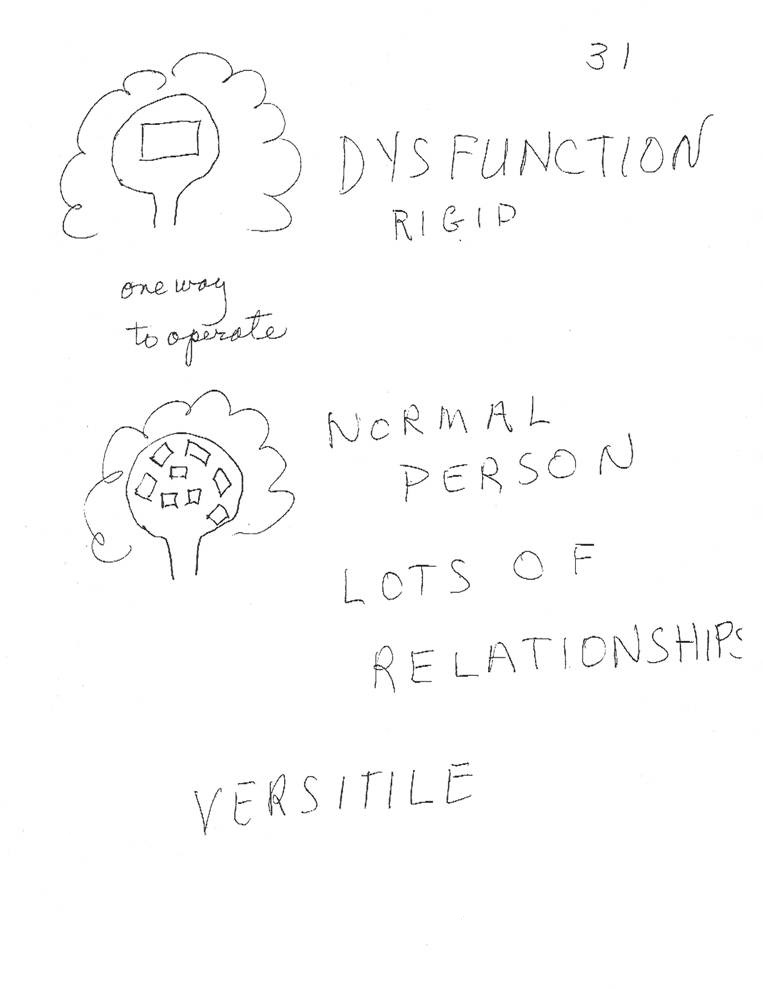 31
DYSFUNCTION
RIGID
one way
to operate
NORMAL
PERSON
LOTS OF
RELATIONSHIPS
VERSITILE